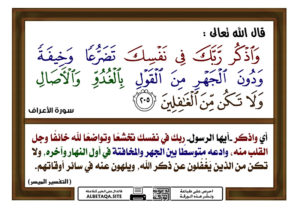 قال الله تعالى :
وَٱذْكُر رَّبَّكَ فِى نَفْسِكَ تَضَرُّعًا وَخِيفَةً
وَدُونَ ٱلْجَهْرِ مِنَ ٱلْقَوْلِ بِٱلْغُدُوِّ وَٱلْءَاصَالِ
وَلَا تَكُن مِّنَ ٱلْغَٰفِلِينَ ٢٠٥
سورة الأعراف
أي واذكر -أيها الرسول- ربك في نفسك تخشعًا وتواضعًا لله خائفًا وجل
القلب منه، وادعه متوسطًا بين الجهر والمخافتة في أول النهار وآخره، ولا
تكن من الذين يَغْفُلون عن ذكر الله، ويلهون عنه في سائر أوقاتهم.
( التفسير الميسر )
ALBETAQA.SITE